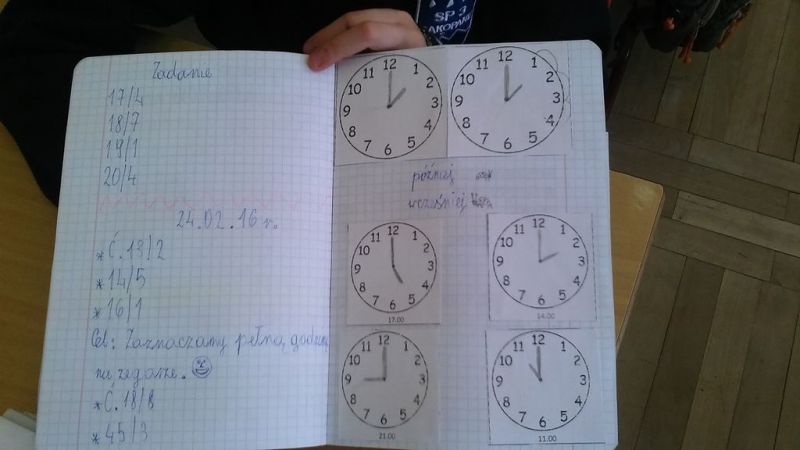 SP 3
ZAKOPANE
Zadanie
17/4
18/7
19/1
20/4
24.02.16 r.
* Ć. 13/2
* 14/5
* 16/1
Cel: Zaznaczamy pełną godzinę
na zegarze.
* Ć. 18/8
* 45/3
12 1 2 3 4 5 6 7 8 9 10 11
12 1 2 3 4 5 6 7 8 9 10 11
później
wcześniej
12 1 2 3 4 5 6 7 8 9 10 11
17.00
12 1 2 3 4 5 6 7 8 9 10 11
14.00
12 1 2 3 4 5 6 7 8 9 10 11
21.00
12 1 2 3 4 5 6 7 8 9 10 11
11.00